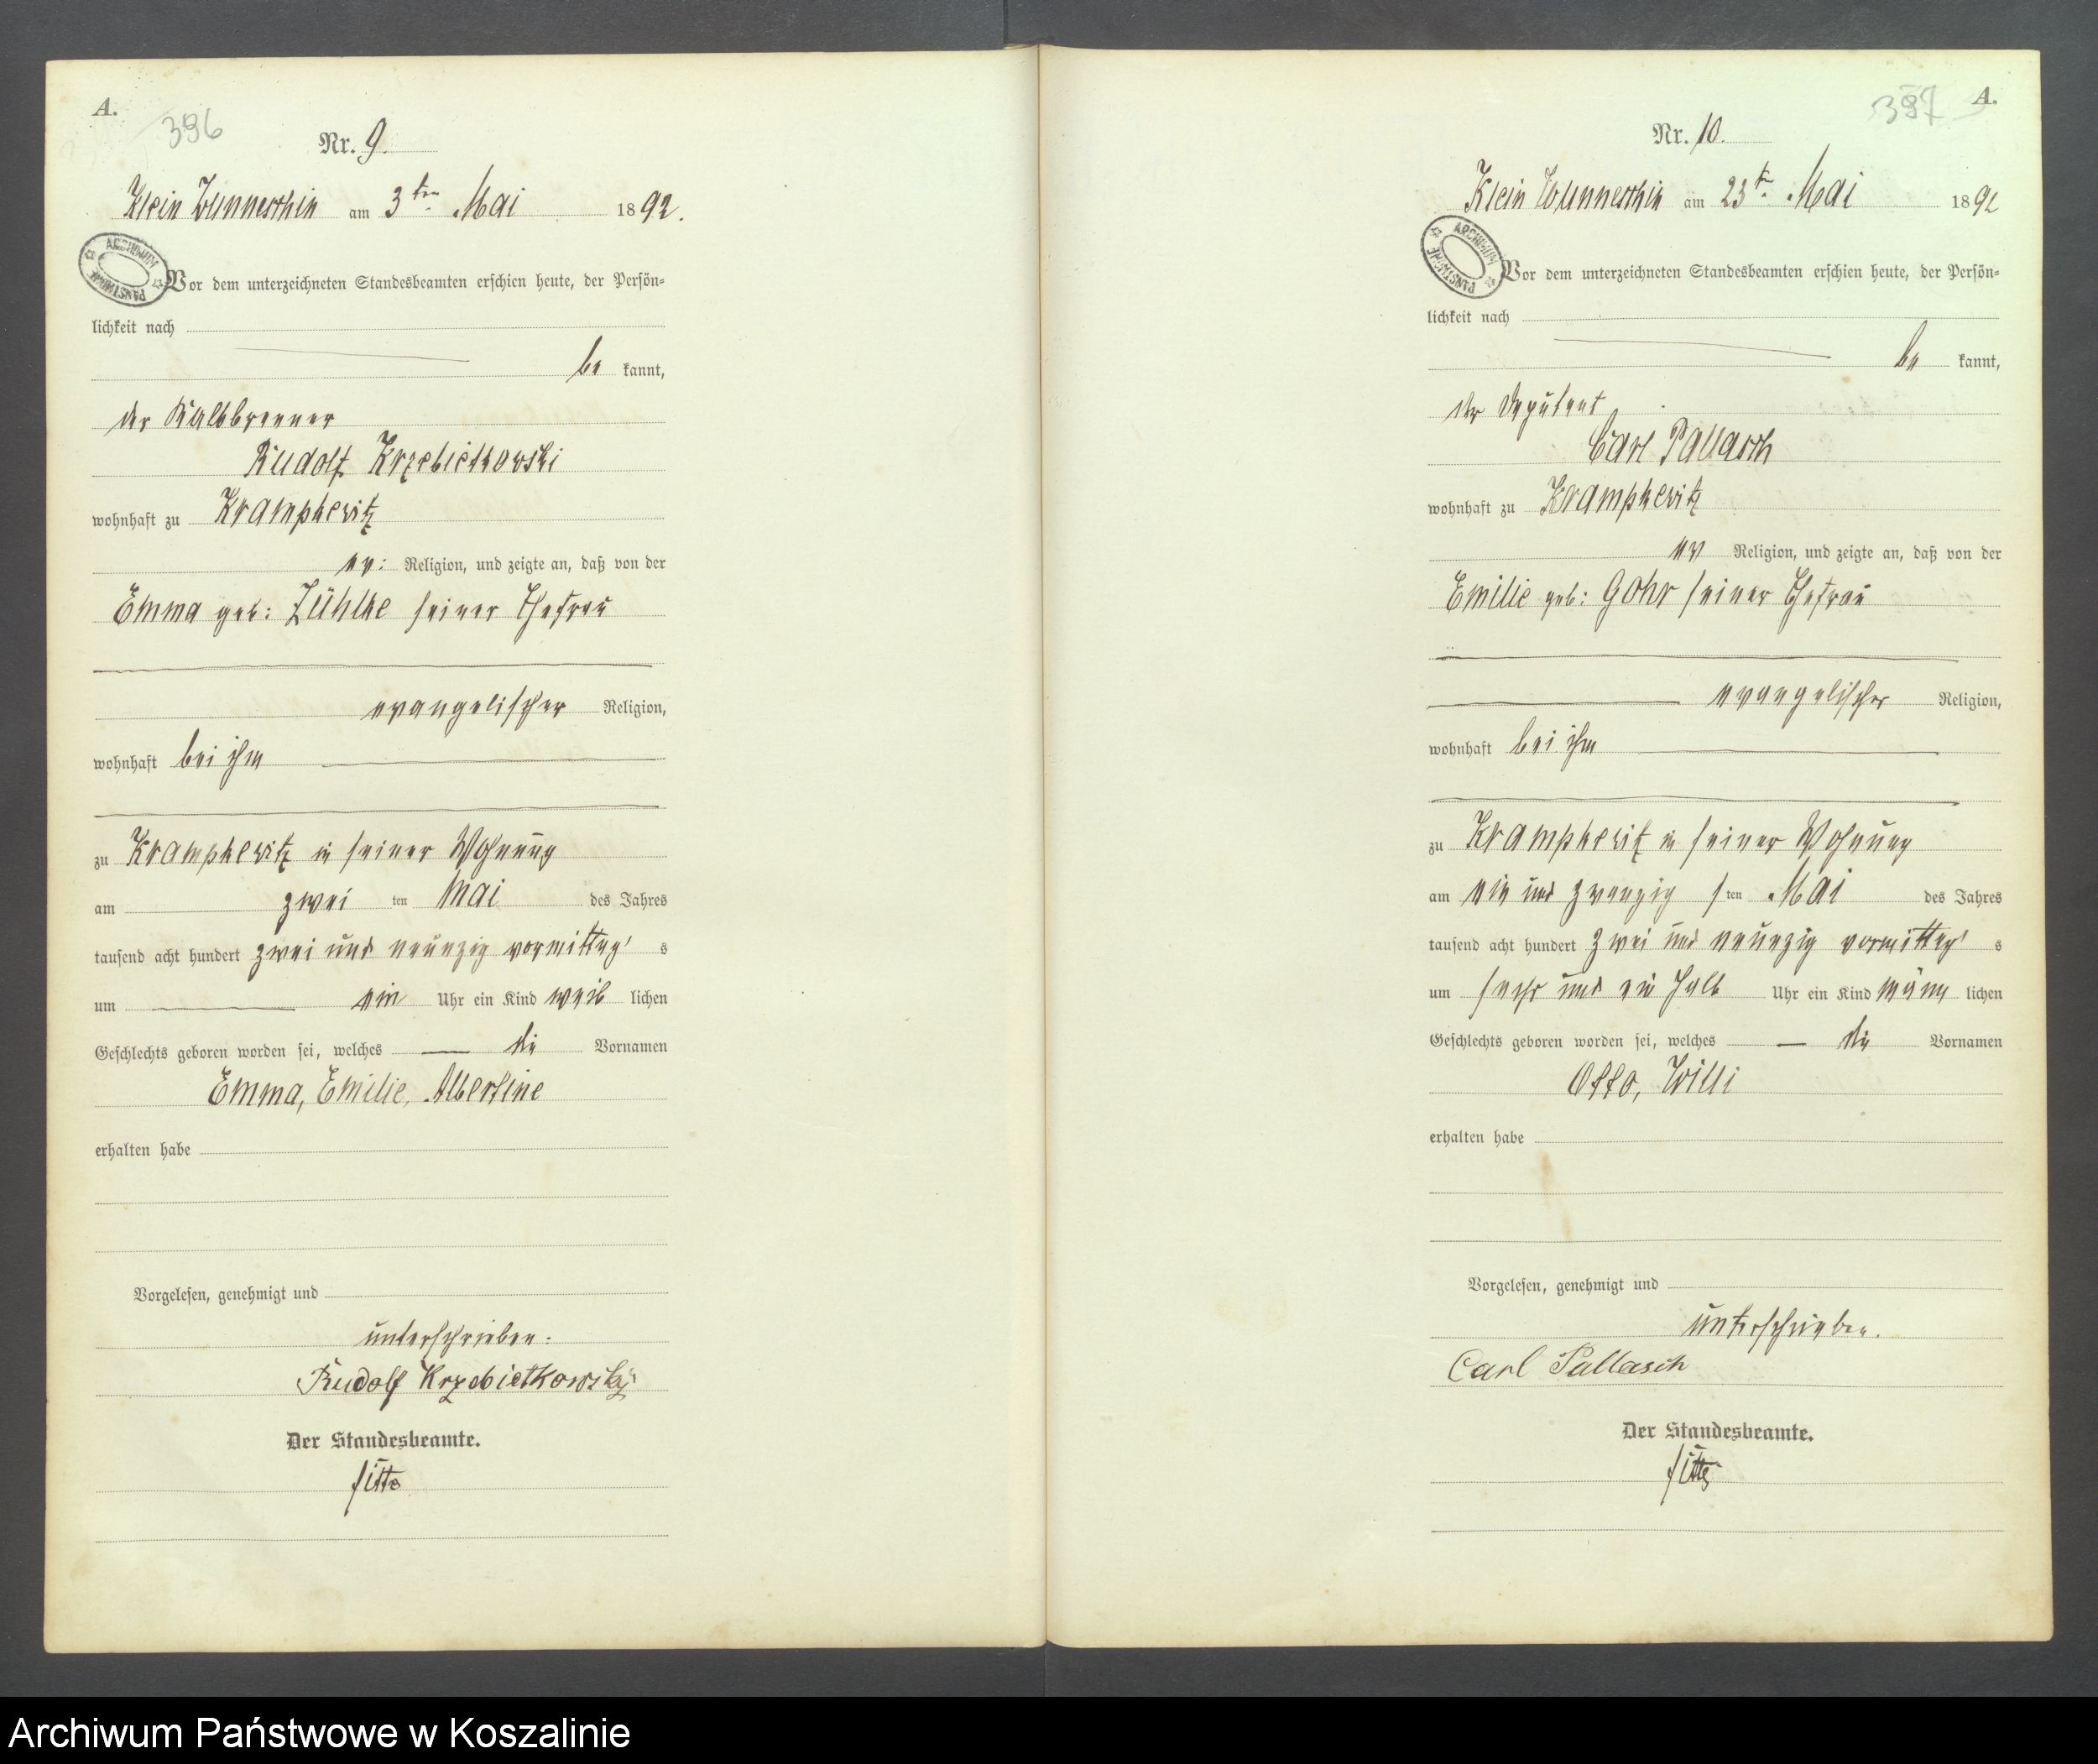 A.
396
Nr. 9.
Klein Wunneschin am 3ten Mai 1892.
ARCHIWUM PAŃSTWOWE
Vor dem unterzeichneten Standesbeamten erschien heute, der Persön-
lichkeit nach
be kannt,
der Kalkbrenner
Rudolf Krzebietkowski
wohnhaft zu Krampkewitz
ev: Religion, und zeigte an, daß von der
Emma geb: Zühlke seiner Ehefrau
evangelischer Religion,
wohnhaft bei ihm
zu Krampkewitz in seiner Wohnung
am zwei ten Mai des Jahres
tausend acht hundert zwei und neunzig vormittag s
um ein Uhr ein Kind weib lichen
Geschlechts geboren worden sei, welches die Vornamen
Emma, Emilie, Albertine
erhalten habe
Vorgelesen, genehmigt und
unterschrieben.
Rudolf Krzebietkowski
Der Standesbeamte.
A.
397
Nr. 10.
Klein Wunneschin am 23t. Mai 1892
ARCHIWUM PAŃSTWOWE
Vor dem unterzeichneten Standesbeamten erschien heute, der Persön-
lichkeit nach
be kannt,
der Deputant
Carl Pallasch
wohnhaft zu Krampkewitz
ev Religion, und zeigte an, daß von der
Emilie geb: Gohr seiner Ehefrau
evangelischer Religion,
wohnhaft bei ihm
zu Krampkewitz in seiner Wohnung
am ein und zwanzig sten Mai des Jahres
tausend acht hundert zwei und neunzig vormittag s
um sechs und ein halb Uhr ein Kind männ lichen
Geschlechts geboren worden sei, welches die Vornamen
Otto, Willi
erhalten habe
Vorgelesen, genehmigt und
unterschrieben.
Carl Pallasch
Der Standesbeamte.
Archiwum Państwowe w Koszalinie